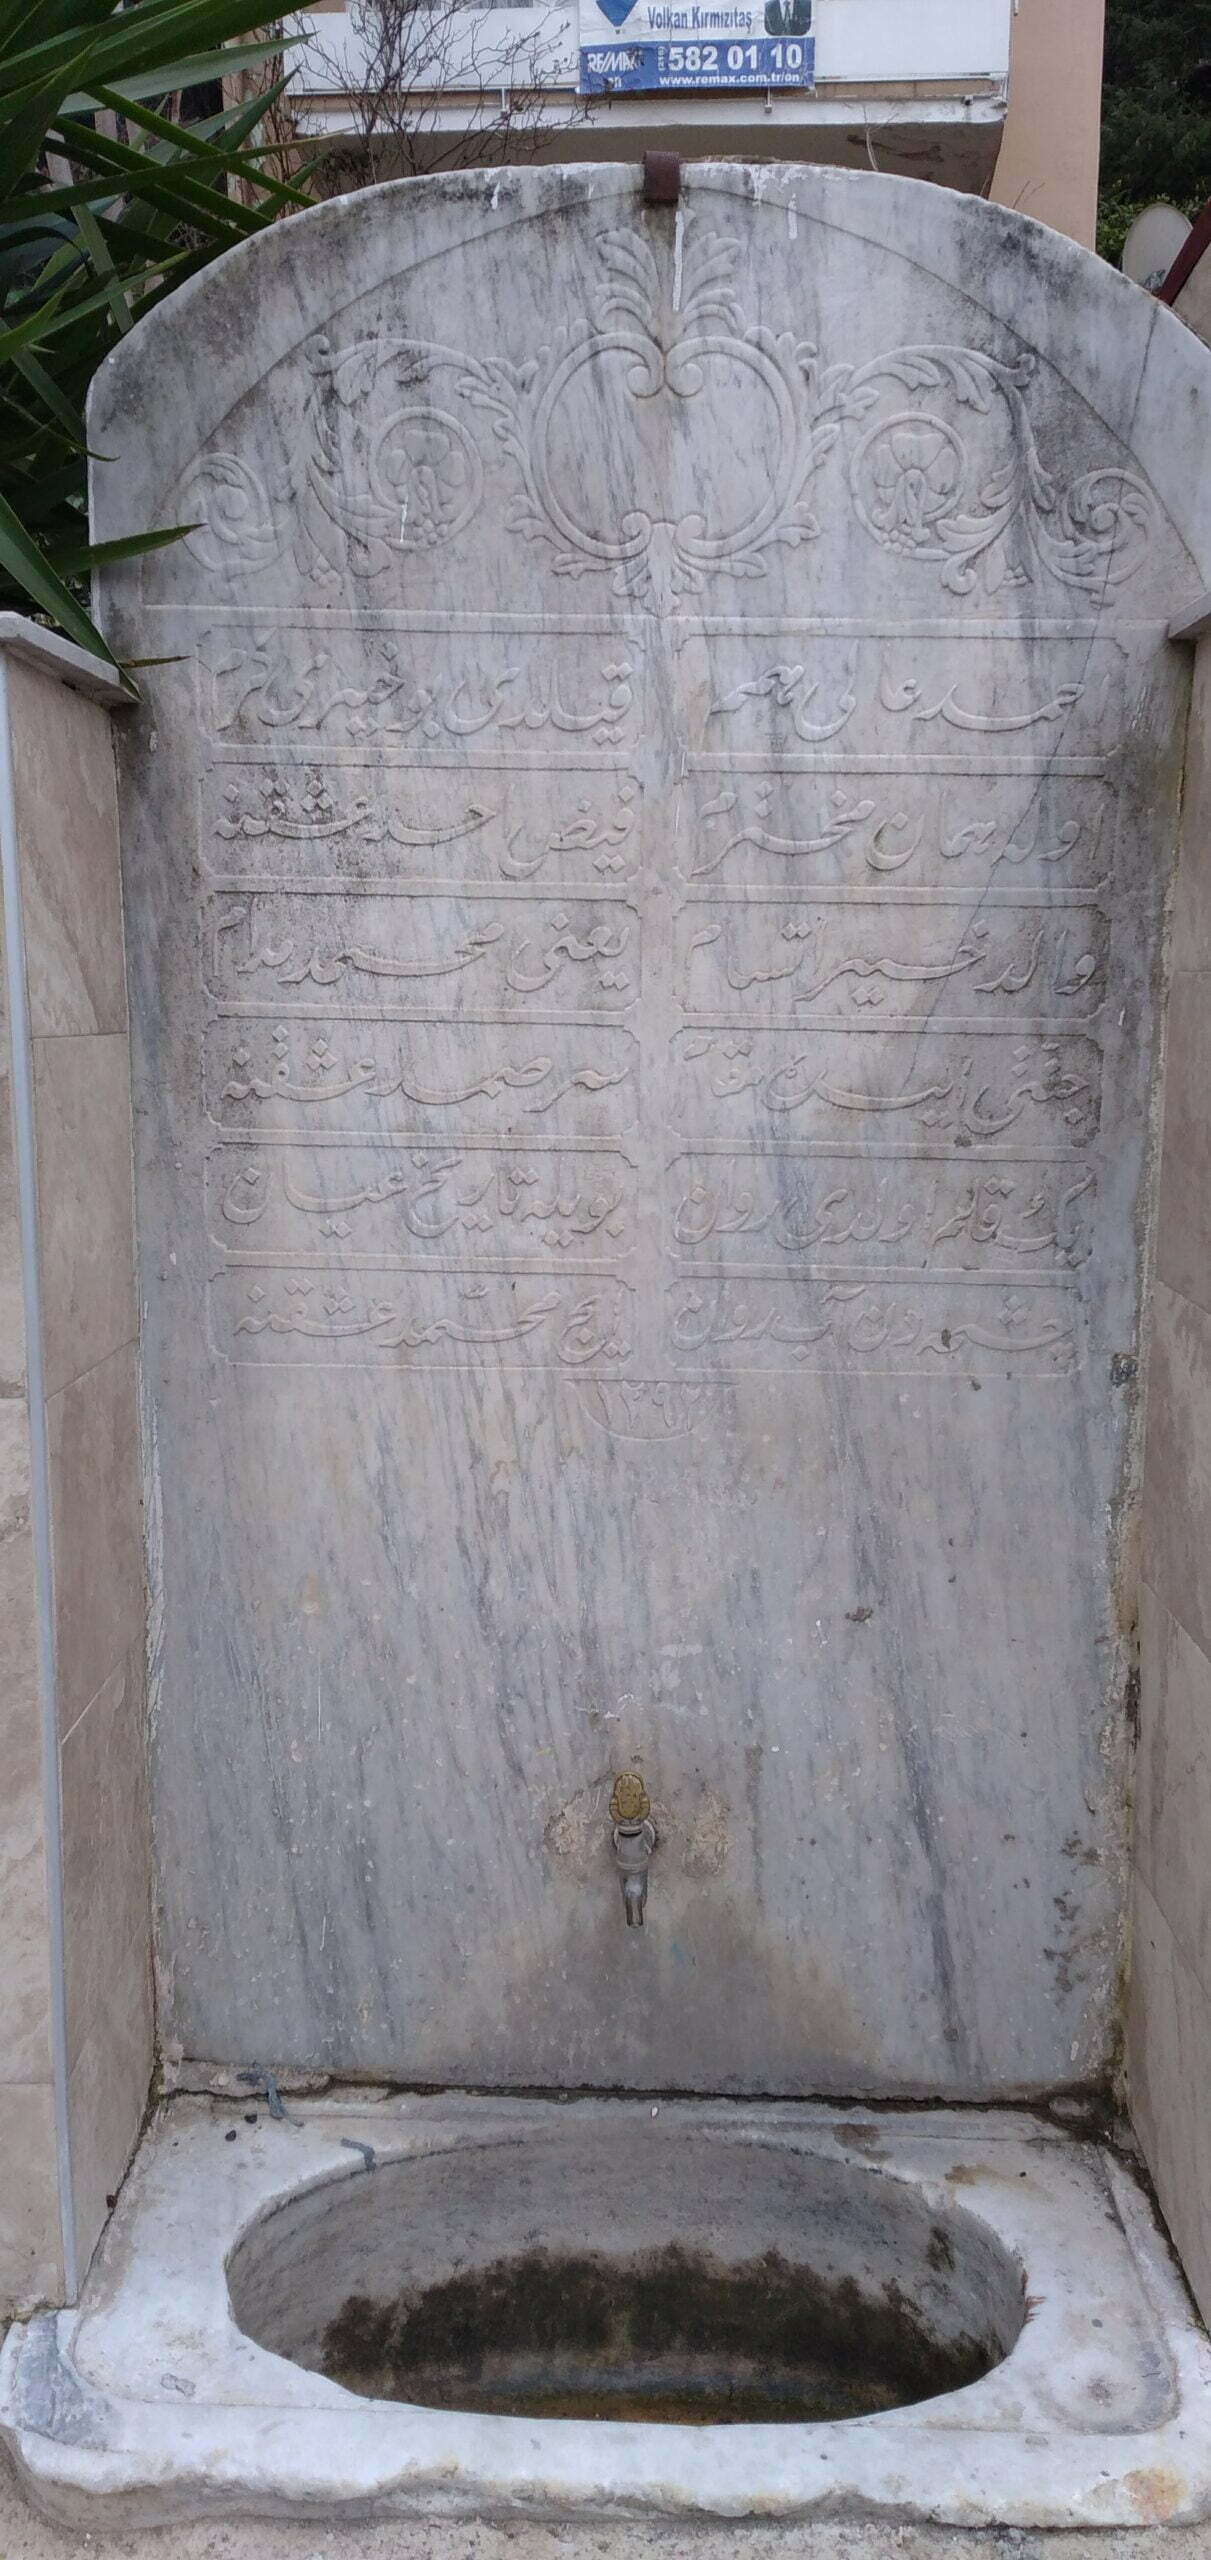 Volkan Kırmızıtaş
RE/MAX 582 01 10
on www.remax.com.tr/on
احمد عالی همم قیلدی بو خیری کرم
اوله همان محترم فیض احد عشقنه
والد خیر اتسام یعنی محمد مدام
جنتی ایده مقام سر صمد عشقنه
یك قلم اولدی روان بویله تاریخ عیان
چشمه دن آب روان ایچ محمد عشقنه
١٢٩٢